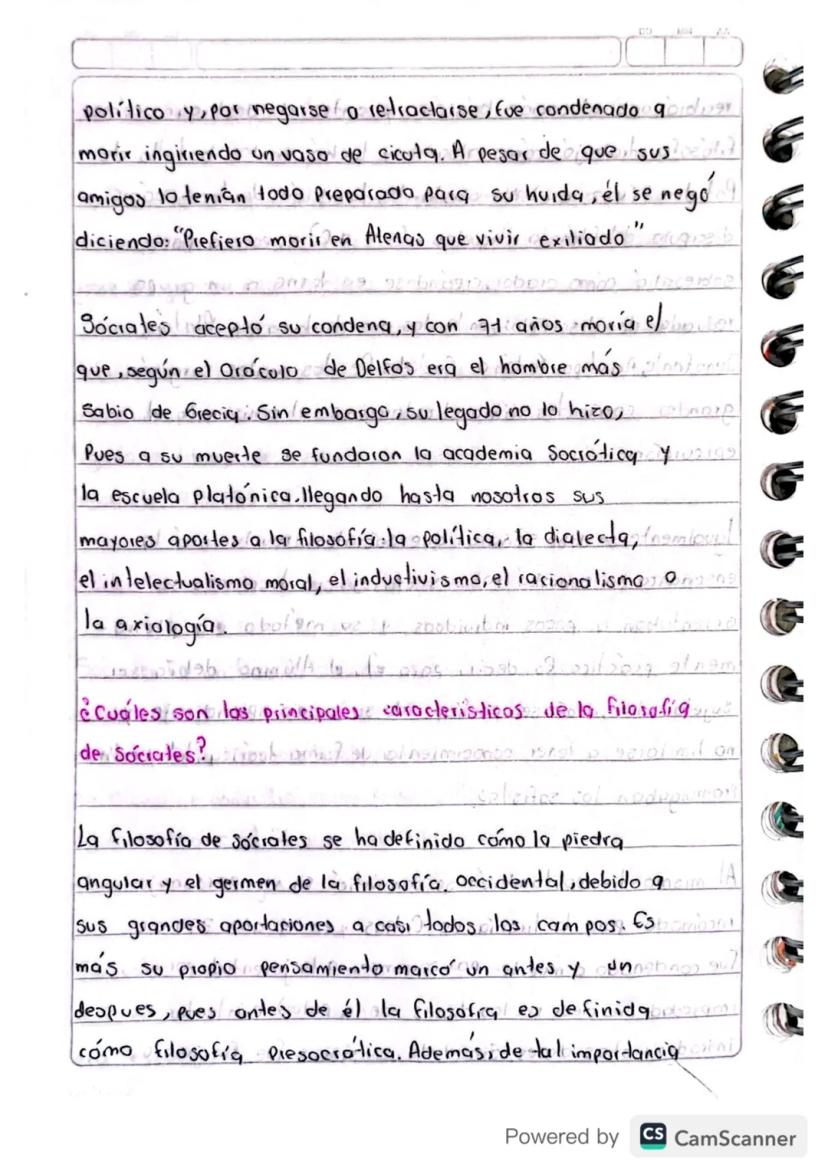 político y, por negarse a retractarse, fue condenado a
morir ingiriendo un vaso de cicuta. A pesar de que sus
amigos lo tenían todo preparado para su huida, él se negó
diciendo: "Prefiero morir en Atenas que vivir exiliado"
Sócrates aceptó su condena, y con 71 años moría el
que, según el Orácolo de Delfos era el hombre más
sabio de Grecia. Sin embargo, su legado no lo hizo,
Pues a su muerte se fundaron la academia Socrática y
la escuela platónica. llegando hasta nosotros sus
mayores aportes a la filosofía: la política, la dialecta,
el intelectualismo moral, el inductivismo, el racionalismo o
la axiología.
¿Cuáles son las principales características de la filosofía
de Sócrates?
La filosofía de Sócrates se ha definido cómo la piedra
angular y el germen de la filosofía. occidental, debido a
sus grandes aportaciones a casi todos los campos. Es
más su propio pensamiento marcó un antes y un
despues, pues antes de él la filosofía es definida
cómo filosofía Presocrática. Además, de tal importancia
Powered by CS CamScanner